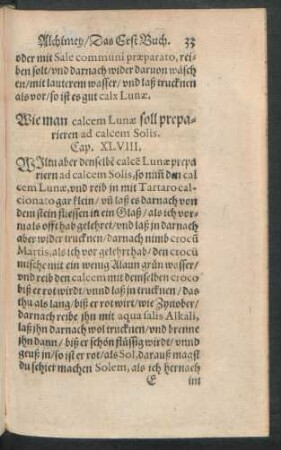 Alchimey/Das Erst Buch. 33
oder mit Sale communi præparato, rei-
ben solt/vnd darnach wider daruon wäsch
en/mit lauterem wasser/ vnd laß trucknen
als vor/so ist es gut calx Lunæ.
Wie man calcem Lunæ soll prepa-
rieren ad calcem Solis.
Cap. XLVIII.
WIltu aber denselbē calcē Lunæ prepa
riern ad calcem Solis, so nim̄ den cal
cem Lunæ, vnd reib jn mit Tartaro cal-
cionato gar klein/ vn̄ laß es darnach von
dem stein fliessen in ein Glaß/ als ich vor-
mals offt hab gelehret/vnd laß jn darnach
aber wider trucknen/ darnach nimb crocū
Martis, als ich vor gelehrt hab/den crocū
mische mit ein wenig Alaun grün wasser/
vnd reib den calcem mit demselben croco
biß er rot wirdt/ vnnd laß jn trucknen/ das
thu als lang/ biß er rot wirt/ wie Zynober/
darnach reibe jhn mit aqua salis Alkali,
laß jhn darnach wol trucknen/ vnd brenne
jhn dann/ biß er schön flüssig wirdt/ vnnd
geuß jn/so ist er rot/als Sol, darauß magst
du schier machen Solem, als ich hernach
E im